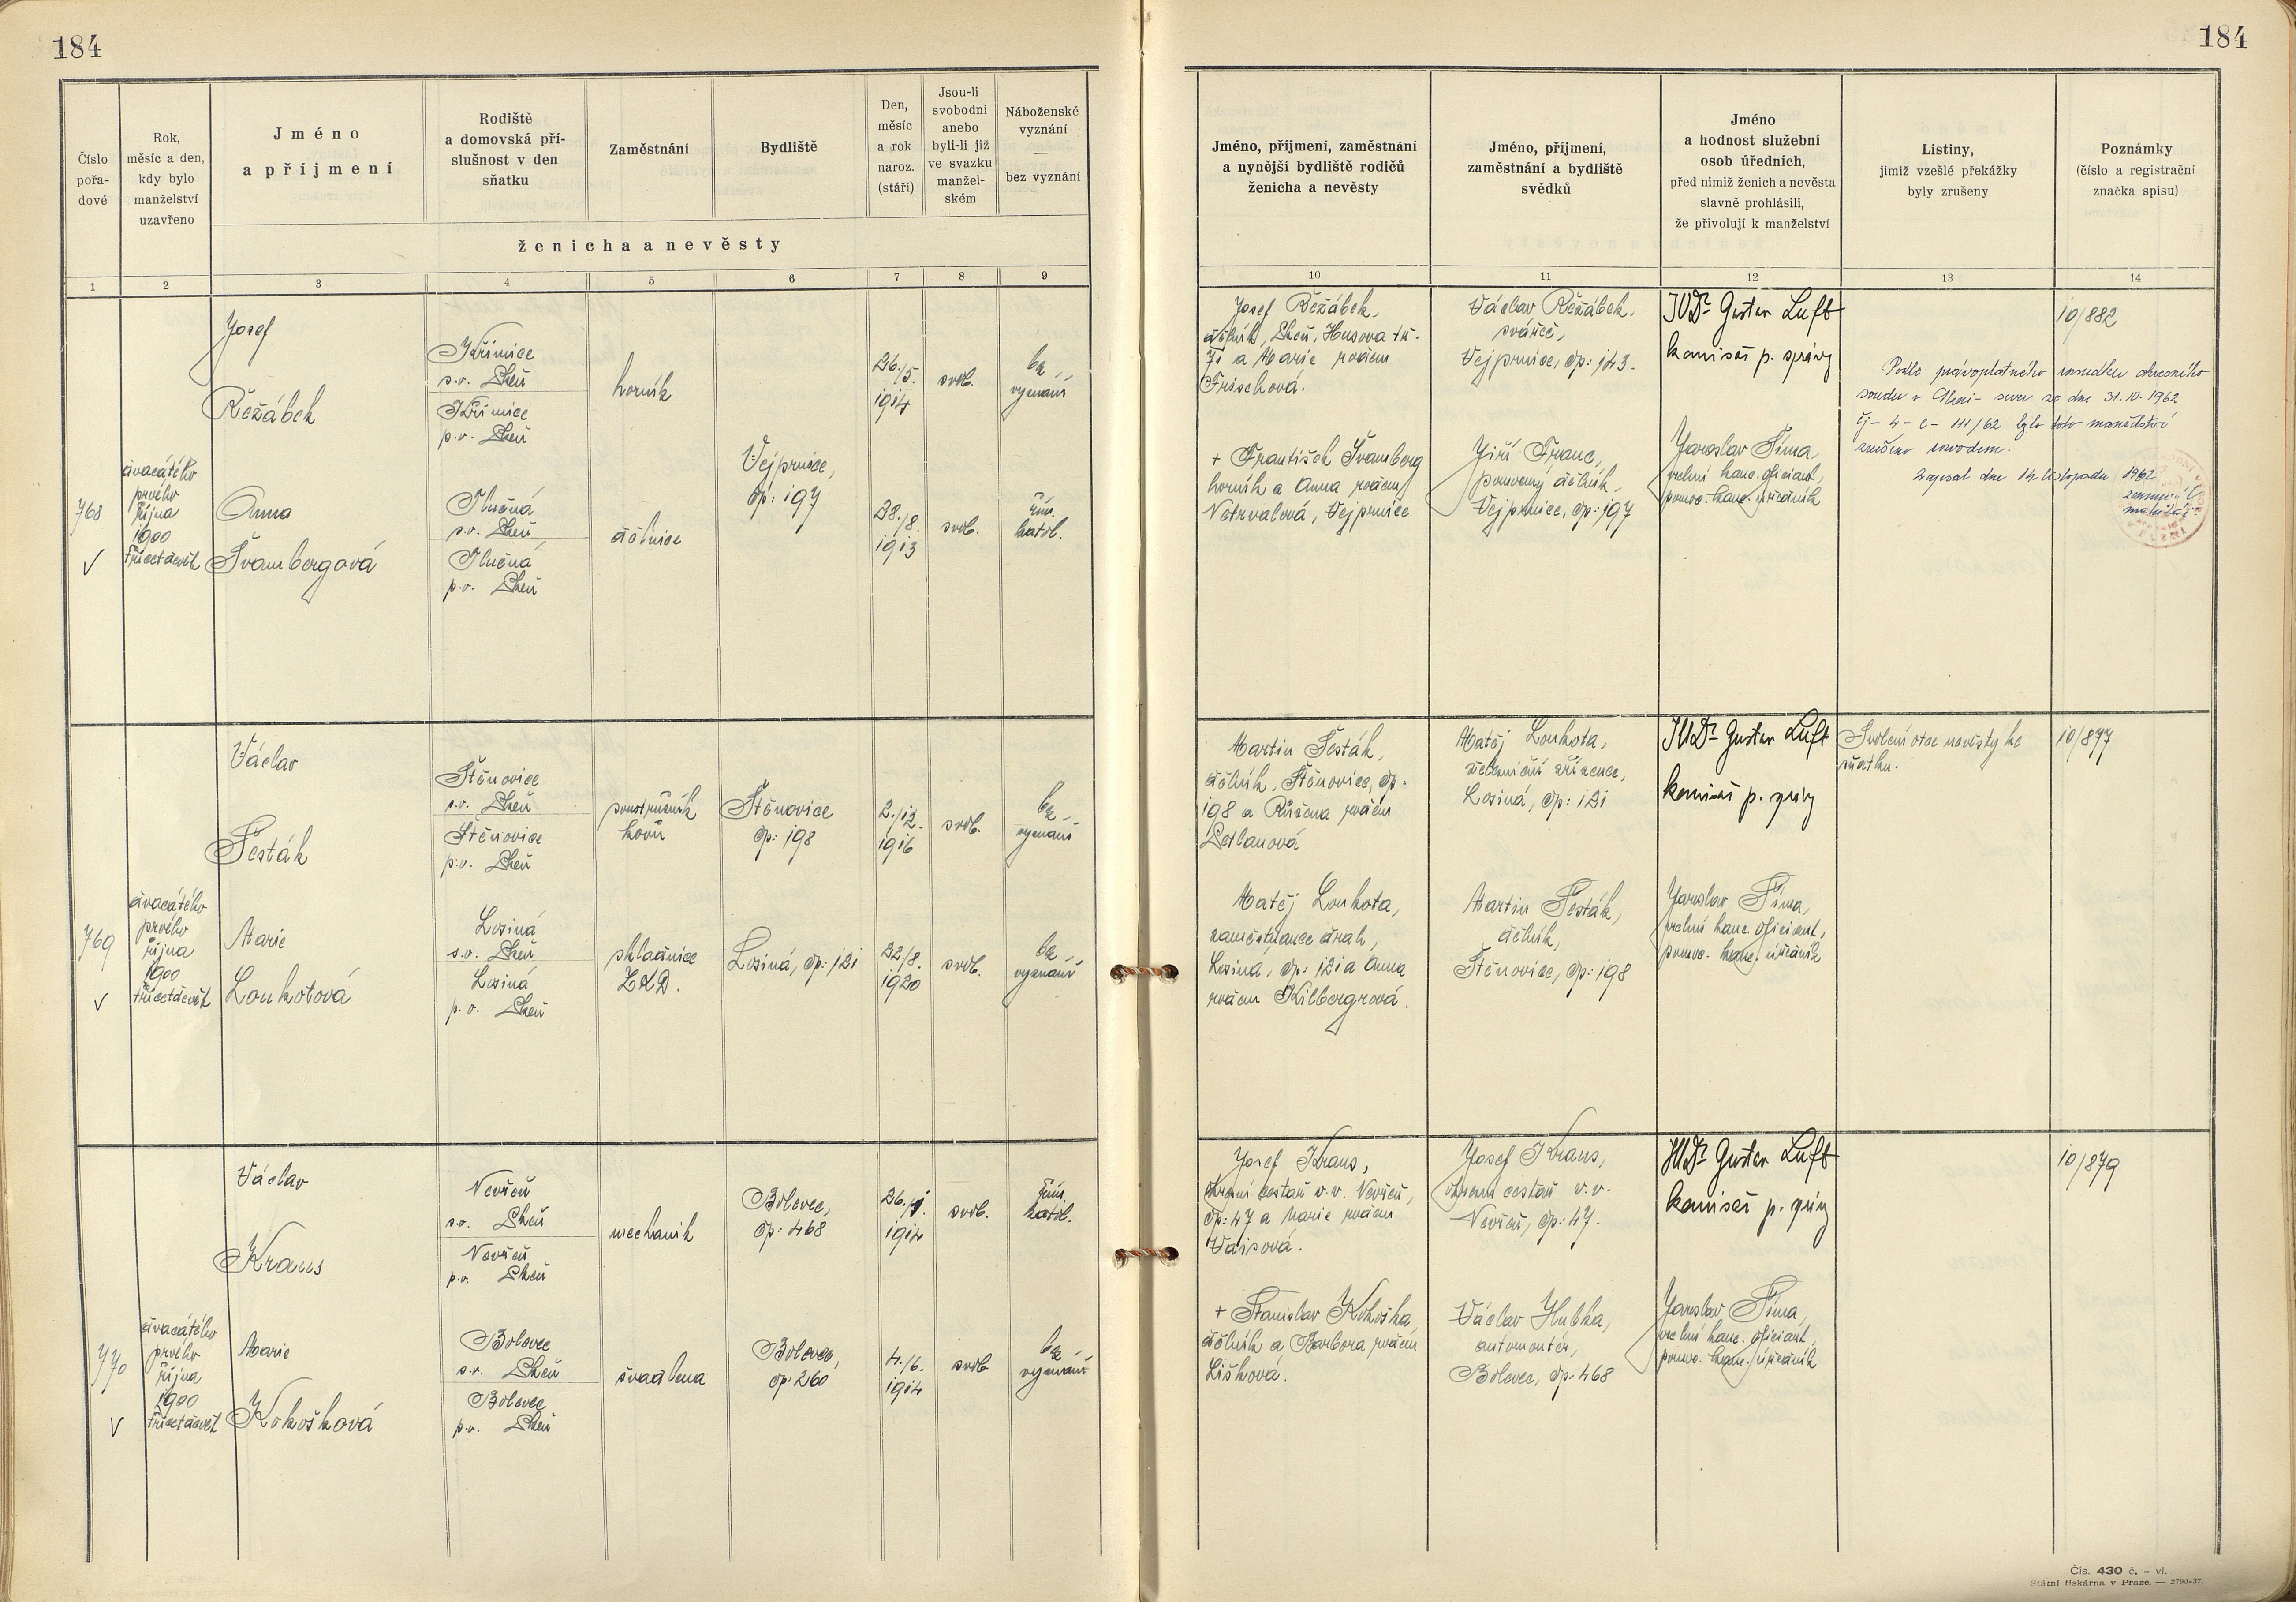 184
184
Číslo
pořa-
dové
Rok,
měsíc a den,
kdy bylo
manželství
uzavřeno
Jméno
a příjmení
Rodiště
a domovská pří-
slušnost v den
sňatku
Zaměstnání
Bydliště
Den,
měsíc
a rok
naroz.
(stáří)
Jsou-li
svobodni
anebo
byli-li již
ve svazku
manžel-
ském
Náboženské
vyznání
—
bez vyznání
ženicha a nevěsty
Jméno, příjmení, zaměstnání
a nynější bydliště rodičů
ženicha a nevěsty
Jméno, příjmení,
zaměstnání a bydliště
svědků
Jméno
a hodnost služební
osob úředních,
před nimiž ženich a nevěsta
slavně prohlásili,
že přivolují k manželství
Listiny,
jimiž vzešlé překážky
byly zrušeny
Poznámky
(číslo a registrační
značka spisu)
1 2 3 4 5 6 7 8 9 10 11 12 13 14
768
dvacátého
prvého
října
1900
třicetdevět
Josef
Řežábek
Křimice
s.o. Plzeň
Křimice
p.o. Plzeň
horník
Vejprnice,
čp: 197
26./5.
1914
svob.
bez
vyznání
Anna
Švambergová
Tlučná
s.o. Plzeň
Tlučná
p.o. Plzeň
dělnice
28./8.
1913
svob.
řím.
katol.
Josef Řežábek,
dělník, Plzeň, Husova tř.
71 a Marie rodem
Frischová.
+ František Švamberg
horník a Anna rodem
Netrvalová, Vejprnice
Václav Řežábek,
svářeč,
Vejprnice, čp: 143.
Jiří Franc,
pomocný dělník,
Vejprnice, čp: 197
JUDr Gustav Luft
komisař p. správy
Jaroslav Šíma,
vrchní kanc. oficiant,
pomoc. kanc. úředník
Podle právoplatného rozsudku okresního
soudu v Plzni - sever ze dne 31.10.1962
čj - 4 - C - 111/62 bylo toto manželství
zrušeno rozvodem.
Zapsal dne 14. listopadu 1962
10/882
769
dvacátého
prvého
října
1900
třicetdevět
Václav
Šesták
Štěnovice
s.o. Plzeň
Štěnovice
p.o. Plzeň
soustružník
kovů
Štěnovice
čp: 198
2./12.
1916
svob.
bez
vyznání
Marie
Loukotová
Losiná
s.o. Plzeň
Losiná
p.o. Plzeň
skladnice
ZKD.
Losiná, čp: 121
22./8.
1920
svob.
bez
vyznání
Martin Šesták,
dělník, Štěnovice, čp.
198 a Růžena rodem
Matěj Loukota,
zaměstnanec drah,
Losiná, čp: 121 a Anna
rodem Kilbergrová.
Matěj Loukota,
železniční zřízenec,
Losiná, čp: 121
Martin Šesták,
dělník,
Štěnovice, čp: 198
JUDr Gustav Luft
komisař p. správy
Jaroslav Šíma,
vrchní kanc. oficiant,
pomoc. kanc. úředník
Svolení otce nevěsty ke
sňatku.
10/877
770
dvacátého
prvého
října
1900
třicetdevět
Václav
Kraus
Nevřeň
s.o. Plzeň
Nevřeň
p.o. Plzeň
mechanik
Bolevec,
čp: 468
1914
svob.
řím.
katol.
Marie
Kokošková
Bolevec
s.o. Plzeň
Bolevec
p.o. Plzeň
švadlena
Bolevec,
čp. 260
4./6.
1914
svob
bez
vyznání
Josef Kraus,
cestář v.v. Nevřeň,
čp: 47 a Marie rodem
Vaisová.
+ Stanislav Kokoška,
dělník a Barbora rodem
Lišková.
Josef Kraus,
cestář v.v.
Nevřeň, čp: 47.
Václav Hubka,
automontér,
Bolevec, čp. 468
JUDr Gustav Luft
komisař p. správy
Jaroslav Šíma,
vrchní kanc. oficiant,
pomoc. kanc. úředník
10/879
Čís. 430 č. - vl.
Státní tiskárna v Praze. — 2790-37.